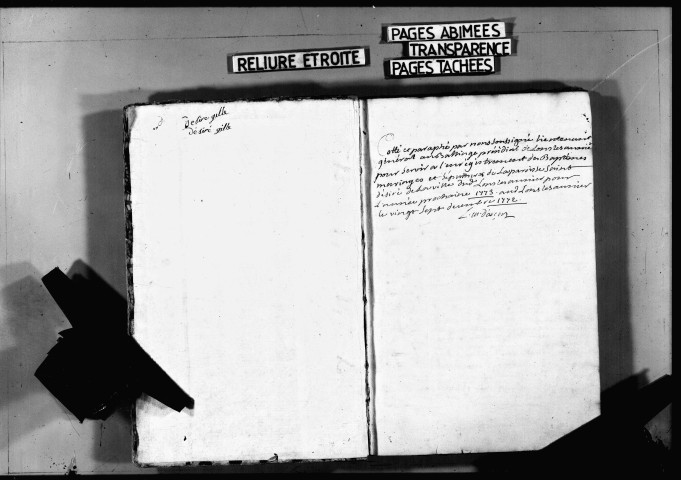 PAGES ABIMEES
TRANSPARENCE
PAGES TACHEES
RELIURE ETROITE
Desire gille
désiré gille
Cotté et paraphé par nous soussigné lieutenant
général au Baillage présidial de Lons le saunier
pour servir a l'enregistrement des Baptemes
mariages et sépultures de la paroisse saint
désiré de la ville dud Lons le saunier pour
l'année prochaine 1773. aud Lons le saunier
le vingt sept decembre 1772.